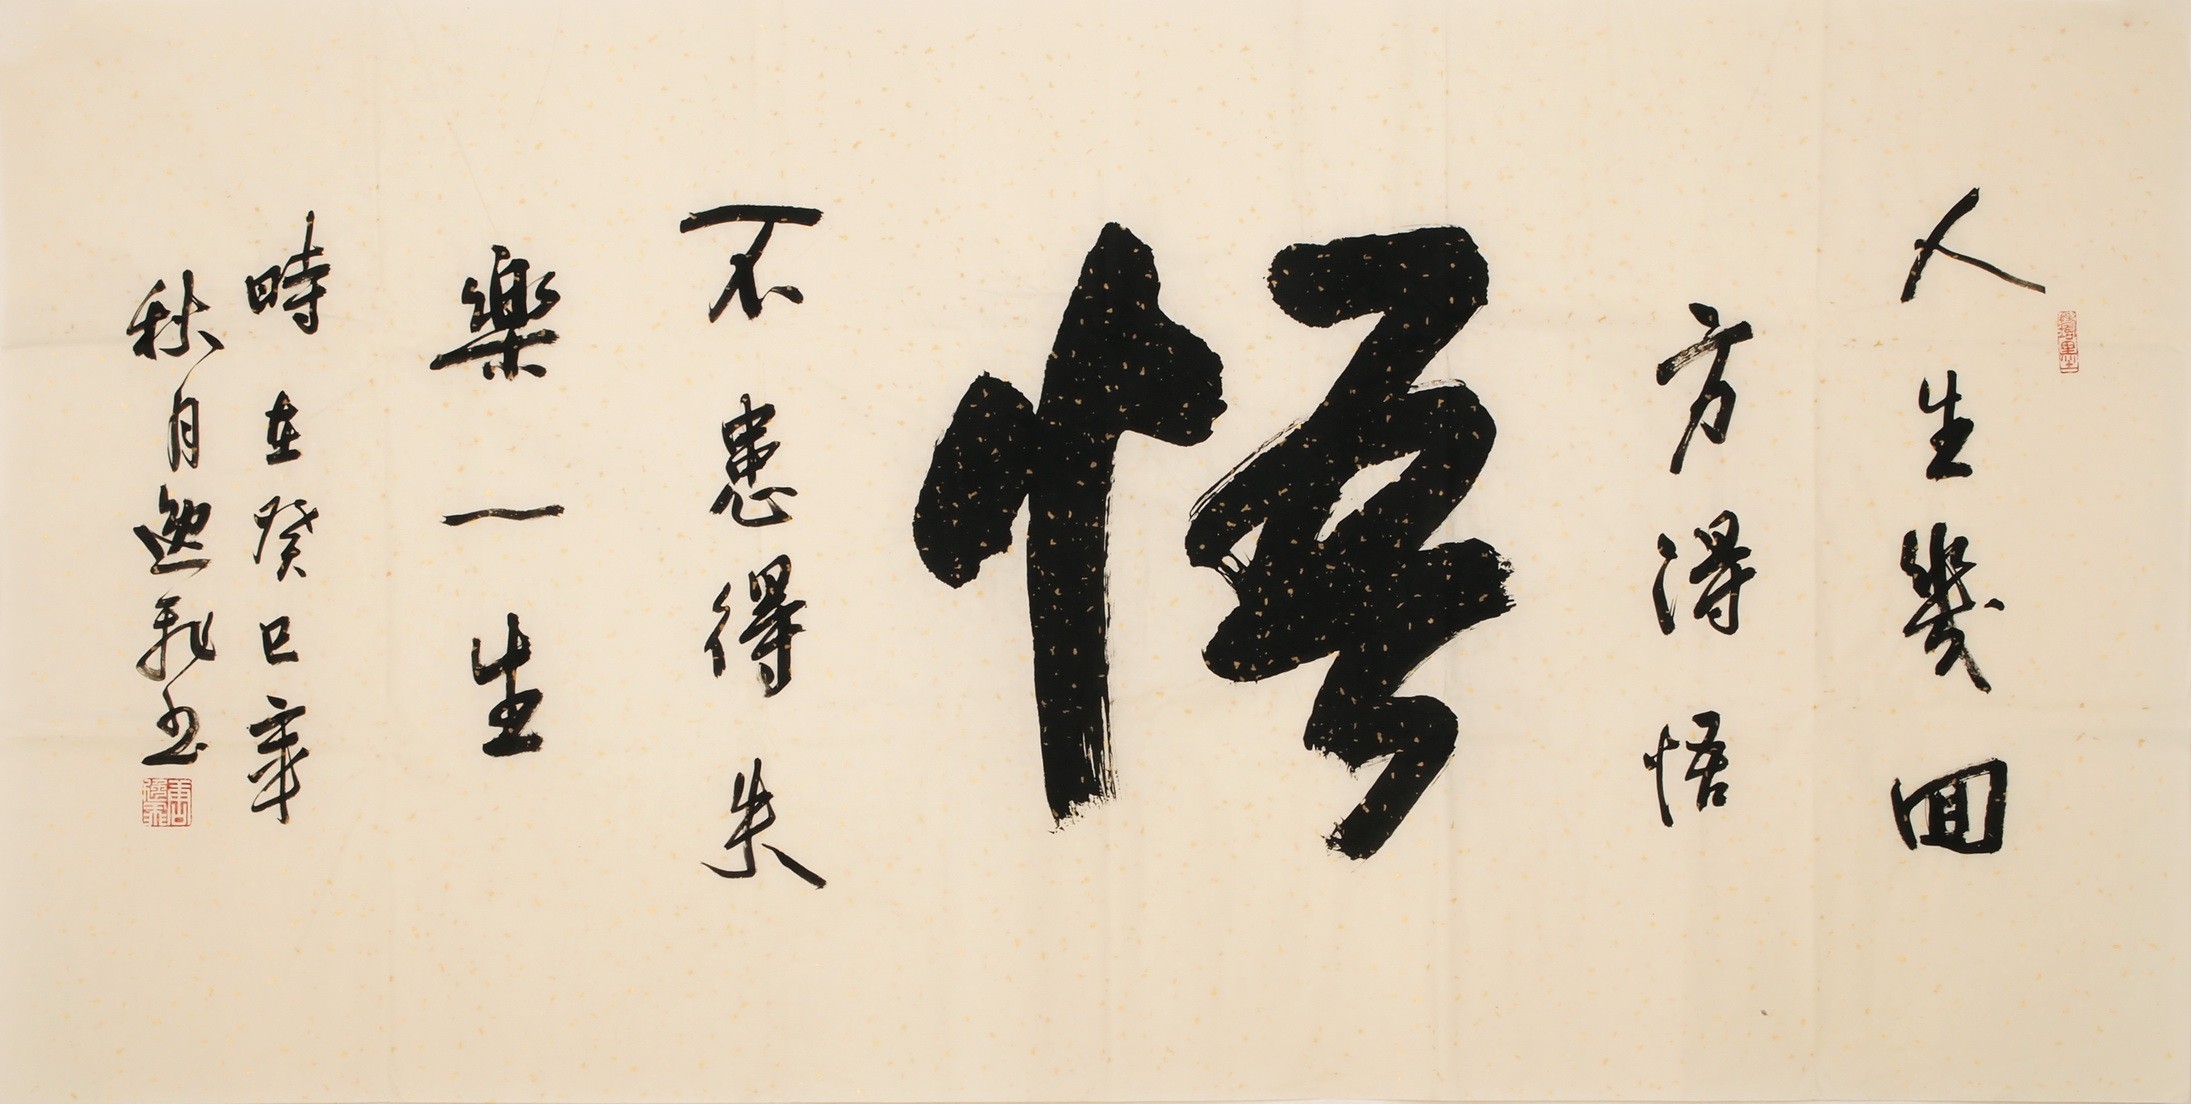 人生幾回
方得悟
悟
不患得失
樂一生
時在癸巳年
秋月逸飛书